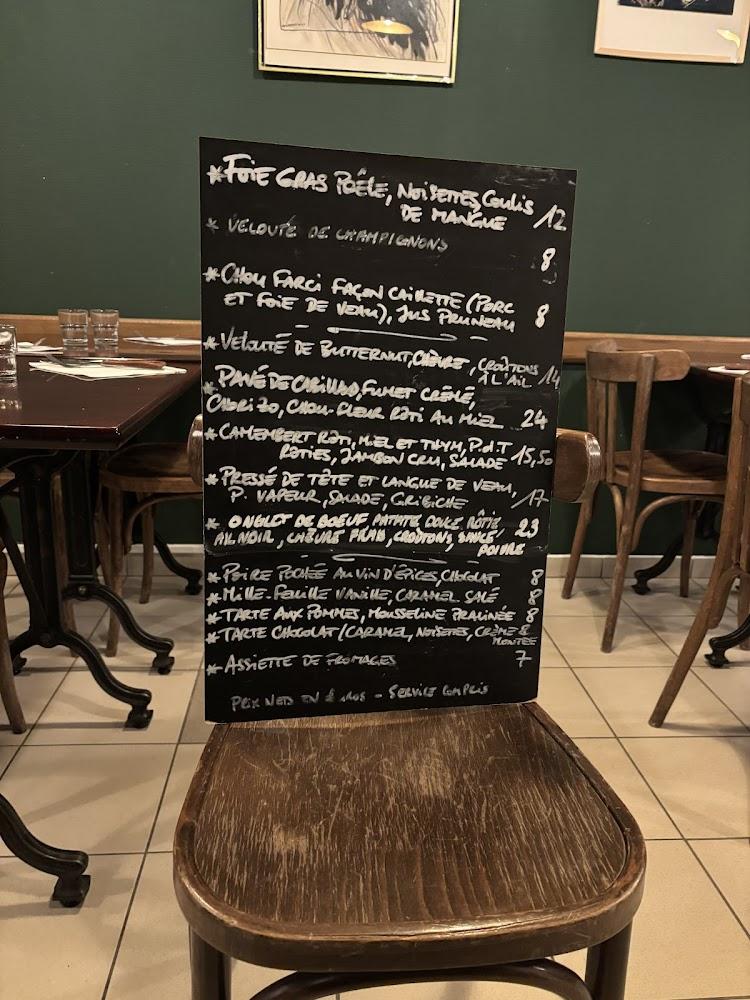 * FOIE GRAS POÊLE, NOISETTES, COULIS
DE MANGUE 12
* VELOUTÉ DE CHAMPIGNONS 8
* CHOU FARCI FAÇON CAIRETTE (PORC
ET FOIE DE VEAU), JUS PRUNEAU 8
* VELOUTÉ DE BUTTERNUT, CHÈVRE, CROÛTONS
À L'AIL 14
* PAVÉ DE CABILLAUD, FUMET CRÉMÉ,
CHORIZO, CHOU-FLEUR RÔTI AU MIEL 24
* CAMEMBERT RÔTI, MIEL ET THYM, P.d.T
RÔTIES, JAMBON CRU, SALADE 15,50
* PRESSÉ DE TÊTE ET LANGUE DE VEAU,
P. VAPEUR, SALADE, GRIBICHE 17
* ONGLET DE BOEUF PATATE DOUCE RÔTIE,
AIL NOIR, CHÈVRE FRAIS, CROÛTONS, SAUCE 23
POIVRE
* POIRE POCHÉE AU VIN D'ÉPICES, CHOCOLAT 8
* MILLE-FEUILLE VANILLE, CARAMEL SALÉ 8
* TARTE AUX POMMES, MOUSSELINE PRALINÉE 8
* TARTE CHOCOLAT/CARAMEL, NOISETTES, CRÈME 8
MONTÉE
* ASSIETTE DE FROMAGES 7
PRIX NETS EN € - SERVICE COMPRIS